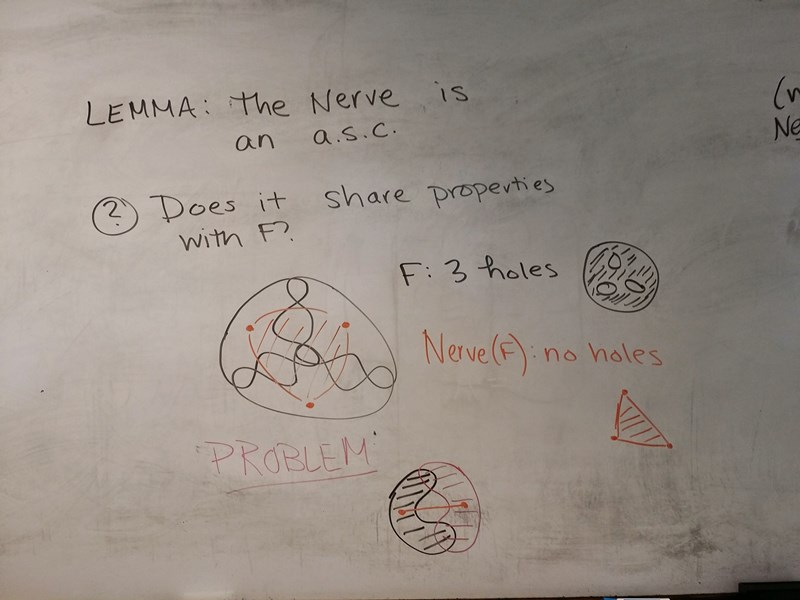 LEMMA: the Nerve is
an a.s.c.
? Does it share properties
with F?
F: 3 holes
Nerve(F): no holes
PROBLEM